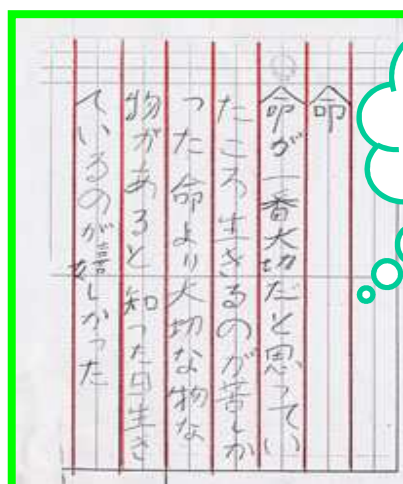 命
命が一番大切だと思ってい
たころ生きるのが苦しか
った命より大切な物な
物があると知った日生き
ているのが嬉しかった